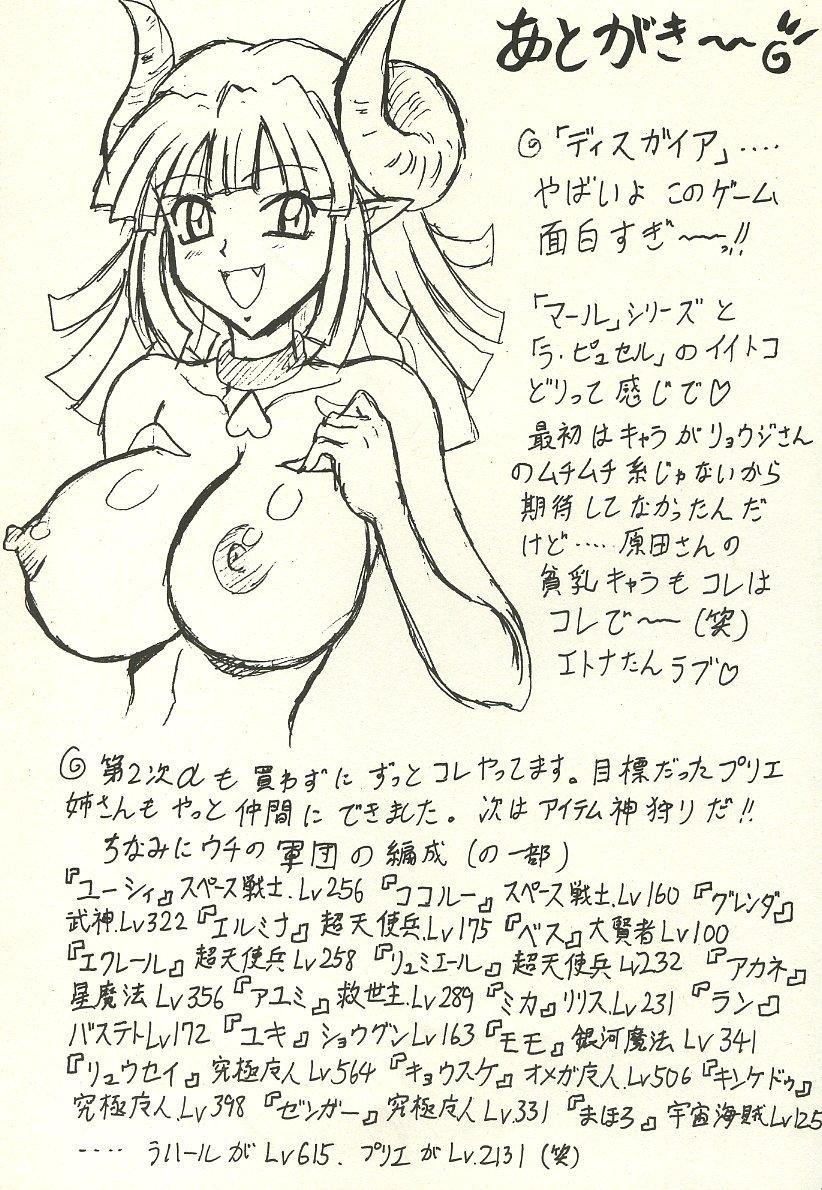 あとがき〜
「ディスガイア」‥‥
やばいよ このゲーム
面白すぎ〜〜っ!!
「マール」シリーズと
「ラ・ピュセル」のイイトコ
どりって感じで♡
最初はキャラがリョウジさん
のムチムチ系じゃないから
期待してなかったんだ
けど‥‥原田さんの
貧乳キャラもコレは
コレで〜(笑)
エトナたんラブ♡
第2次αも買わずにずっとコレやってます。目標だったプリエ
姉さんもやっと仲間にできました。次はアイテム神狩りだ!!
ちなみにウチの軍団の編成(の一部)
『ユーシィ』スペース戦士.Lv256『ココルー』スペース戦士.Lv160『グレンダ』
武神.Lv322『エルミナ』超天使兵.Lv175『ベス』大賢者Lv100
『エクレール』超天使兵Lv258『リュミエール』超天使兵Lv232『アカネ』
星魔法Lv356『アユミ』救世主.Lv289『ミカ』リリス.Lv231『ラン』
バステトLv172『ユキ』ショウグンLv163『モモ』銀河魔法Lv341
『リュウセイ』究極魔人Lv564『キョウスケ』オメガ魔人.Lv506『キンケドゥ』
究極魔人.Lv398『ゼンガー』究極魔人Lv.331『まほろ』宇宙海賊Lv125
‥‥ラハールがLv615.プリエがLv.2131(笑)